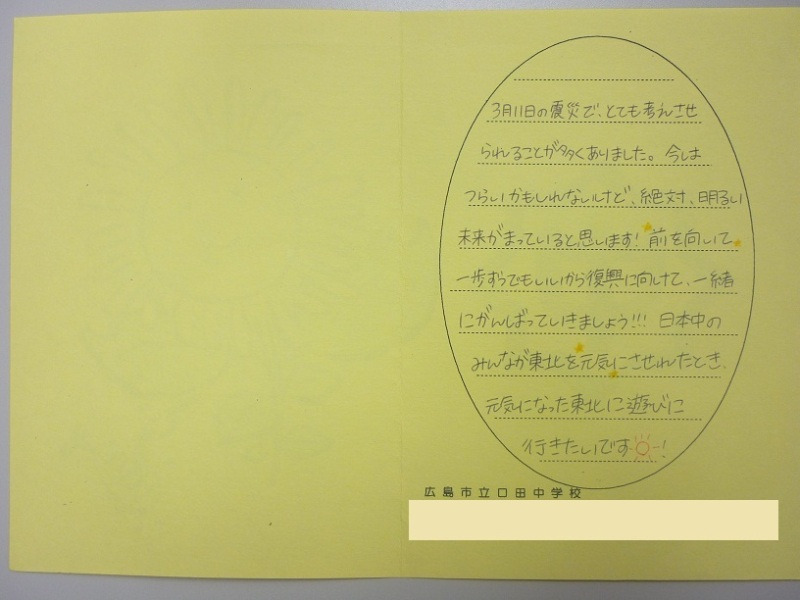 3月11日の震災で、とても考えさせ
られることが多くありました。今は
つらいかもしれないけど、絶対、明るい
未来がまっていると思います!前を向いて、
一歩ずつでもいいから復興に向けて、一緒
にがんばっていきましょう!!!日本中の
みんなが東北を元気にさせれたとき、
元気になった東北に遊びに
行きたいです!
広島市立口田中学校